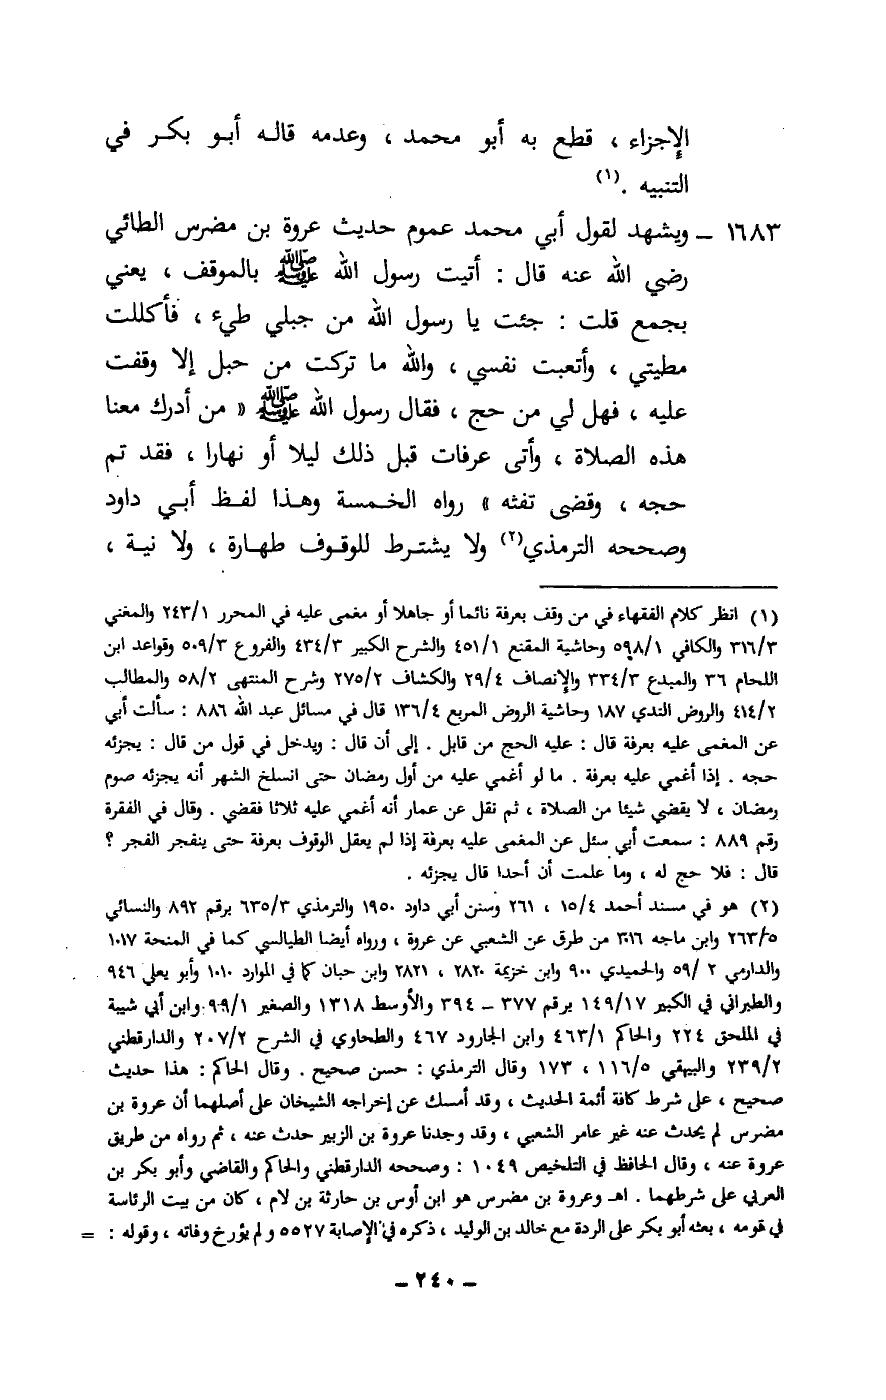 الإجزاء ، قطع به أبو محمد ، وعدمه قاله أبو بكر في
التنبيه .(١)
١٦٨٣ ــ ويشهد لقول أبي محمد عموم حديث عروة بن مضرس الطائي
رضي الله عنه قال : أتيت رسول الله ﷺ بالموقف ، يعني
بجمع قلت : جئت يا رسول الله من جبلي طيء ، فأكللت
مطيتي ، وأتعبت نفسي ، والله ما تركت من حبل إلا وقفت
عليه ، فهل لي من حج ، فقال رسول الله ﷺ « من أدرك معنا
هذه الصلاة ، وأتى عرفات قبل ذلك ليلا أو نهارا ، فقد تم
حجه ، وقضى تفثه » رواه الخمسة وهذا لفظ أبي داود
وصححه الترمذي(٢) ولا يشترط للوقوف طهارة ، ولا نية ،
(١) انظر كلام الفقهاء في من وقف بعرفة نائما أو جاهلا أو مغمى عليه في المحرر ٢٤٣/١ والمغني
٣١٦/٣ والكافي ٥٩٨/١ وحاشية المقنع ٤٥١/١ والشرح الكبير ٤٣٤/٣ والفروع ٥٠٩/٣ وقواعد ابن
اللحام ٣٦ والمبدع ٢٣٤/٣ والإنصاف ٢٩/٤ والكشاف ٢٧٥/٢ وشرح المنتهى ٥٨/٢ والمطالب
٤١٤/٢ والروض الندي ١٨٧ وحاشية الروض المربع ١٣٦/٤ قال في مسائل عبد الله ٨٨٦ : سألت أبي
عن المغمى عليه بعرفة قال : عليه الحج من قابل . إلى أن قال : ويدخل في قول من قال : يجزئه
حجه . إذا أغمي عليه بعرفة . ما لو أغمي عليه من أول رمضان حتى انسلخ الشهر أنه يجزئه صوم
رمضان ، لا يقضي شيئا من الصلاة ، ثم نقل عن عمار أنه أغمي عليه ثلاثا فقضي . وقال في الفقرة
رقم ٨٨٩ : سمعت أبي سئل عن المغمى عليه بعرفة إذا لم يعقل الوقوف بعرفة حتى ينفجر الفجر ؟
قال : فلا حج له ، وما علمت أن أحدا قال يجزئه .
(٢) هو في مسند أحمد ١٥/٤ ، ٢٦١ وسنن أبي داود ١٩٥٠ والترمذي ٦٣٥/٣ برقم ٨٩٢ والنسائي
٢٦٣/٥ وابن ماجه ٣٠١٦ من طرق عن الشعبي عن عروة ، ورواه أيضا الطيالسي كما في المنحة ١٠١٧
والدارمي ٢ /٥٩ والحميدي ٩٠٠ وابن خزيمة ٢٨٢٠ ، ٢٨٢١ وابن حبان كما في الموارد ١٠١٠ وأبو يعلى ٩٤٦
والطبراني في الكبير ١٤٩/١٧ برقم ٣٧٧ ــ ٣٩٤ والأوسط ١٣١٨ والصغير ٩٩/١ وابن أبي شيبة
في الملحق ٢٢٤ والحاكم ٤٦٣/١ وابن الجارود ٤٦٧ والطحاوي في الشرح ٢٠٧/٢ والدارقطني
٢٣٩/٢ والبيهقي ١١٦/٥ ، ١٧٣ وقال الترمذي : حسن صحيح . وقال الحاكم : هذا حديث
صحيح ، على شرط كافة أئمة الحديث ، وقد أمسك عن إخراجه الشيخان على أصلهما أن عروة بن
مضرس لم يحدث عنه غير عامر الشعبي ، وقد وجدنا عروة بن الزبير حدث عنه ، ثم رواه من طريق
عروة عنه ، وقال الحافظ في التلخيص ١٠٤٩ : وصححه الدارقطني والحاكم والقاضي وأبو بكر بن
العربي على شرطهما . اهـ وعروة بن مضرس هو ابن أوس بن حارثة بن لام ، كان من بيت الرئاسة
في قومه ، بعثه أبو بكر على الردة مع خالد بن الوليد ، ذكره في الإصابة ٥٥٢٧ ولم يؤرخ وفاته ، وقوله : =
ــ ٢٤٠ ــ